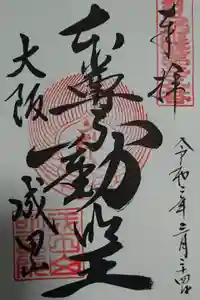 奉拝
令和二年三月二十四日
本尊不動明王
大阪
成田山